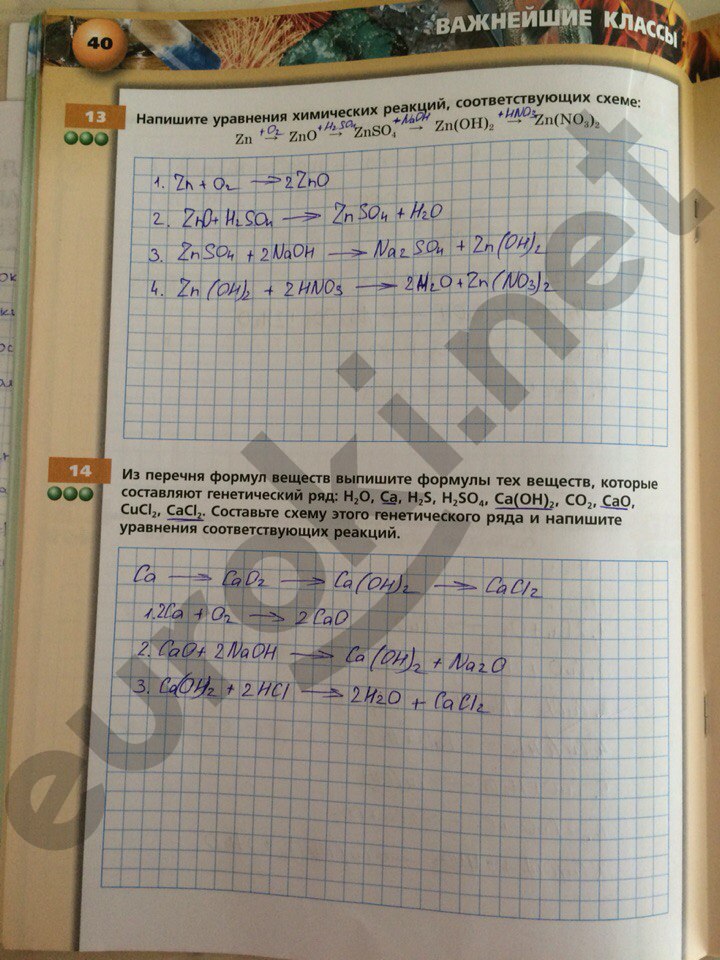 40
ВАЖНЕЙШИЕ КЛАССЫ
13
Напишите уравнения химических реакций, соответствующих схеме:
+O₂ +H₂SO₄ +NaOH +HNO₃
Zn → ZnO → ZnSO₄ → Zn(OH)₂ → Zn(NO₃)₂
1. Zn + O₂ ⟶ 2ZnO
2. ZnO + H₂SO₄ ⟶ ZnSO₄ + H₂O
3. ZnSO₄ + 2NaOH ⟶ Na₂SO₄ + Zn(OH)₂
4. Zn(OH)₂ + 2HNO₃ ⟶ 2H₂O + Zn(NO₃)₂
14
Из перечня формул веществ выпишите формулы тех веществ, которые
составляют генетический ряд: H₂O, Ca, H₂S, H₂SO₄, Ca(OH)₂, CO₂, CaO,
CuCl₂, CaCl₂. Составьте схему этого генетического ряда и напишите
уравнения соответствующих реакций.
Ca ⟶ CaO₂ ⟶ Ca(OH)₂ ⟶ CaCl₂
1. 2Ca + O₂ ⟶ 2CaO
2. CaO + 2NaOH ⟶ Ca(OH)₂ + Na₂O
3. Ca(OH)₂ + 2HCl ⟶ 2H₂O + CaCl₂
euroki.net